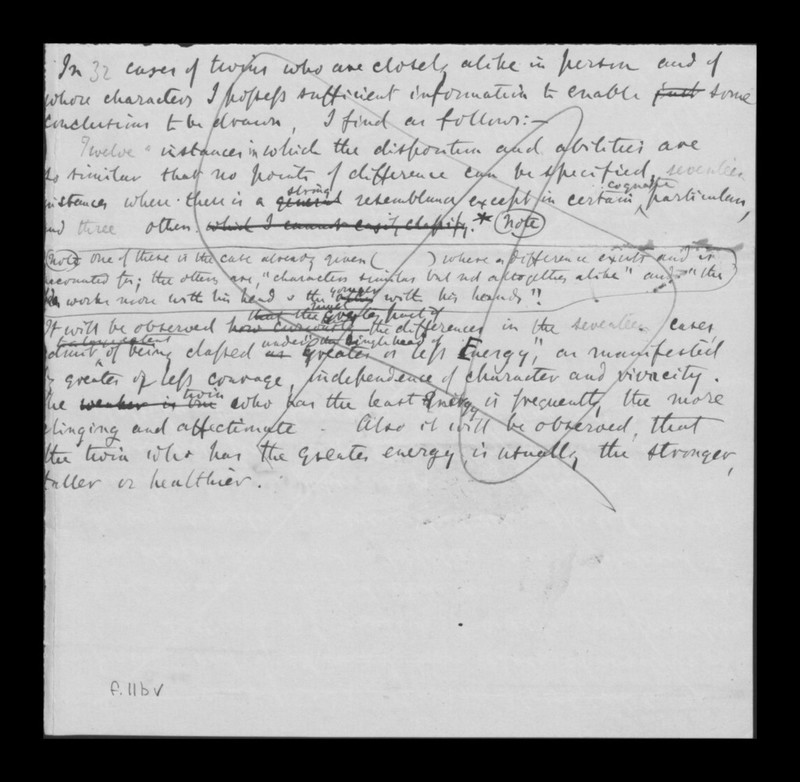 In 32 cases of twins who are closely alike in person and of
whose characters I possess sufficient information to enable just some
conclusions to be drawn, I find as follows:—
Twelve instances in which the disposition and abilities are
so similar that no points of difference can be specified, seventeen
strong cognate
instances where there is a general resemblance except in certain particulars,
and three others which I cannot easily classify.* (Note)
(Note one of these is the case already given ( ) where a difference exists and is
accounted for; the others are, "characters similar but not altogether alike" and "the
younger
works more with his head & the with his hands".
that the greater part of
It will be observed how curiously the differences in the seventeen cases
under the single head of
admit of being classed as greater or less Energy, as manifested
by greater or less courage, independence of character and vivacity.
twin
The weaker is the who has the least Energy is frequently the more
clinging and affectionate. Also it will be observed, that
the twin who has the greater energy is usually the stronger,
taller or healthier.
f.11bv